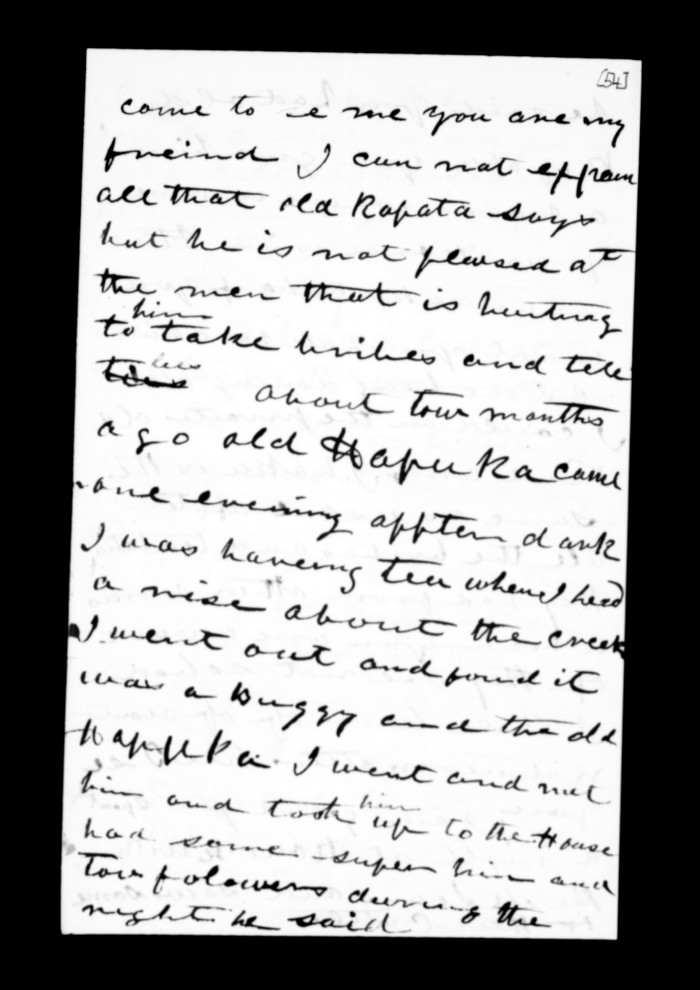 [54]
come to se me you are my
freind I can not exspain
all that old Rapata says
but he is not pleased at
the men that is hurting
him
to take bribes and tell
lies
about tow months
a go old Hapuka came
one evening affter dark
I was haveing tea when I head
a nise about the creek
I went out and found it
was a Buggy and the old
Happuka I went and met
him and took him up to the House
had some super him and
tow folowers during the
night he said